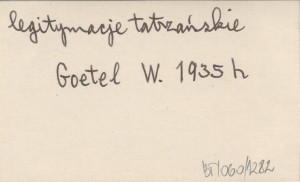 legitymacje tatrzańskie
Goetel W. 1935 h
BT/060/1282